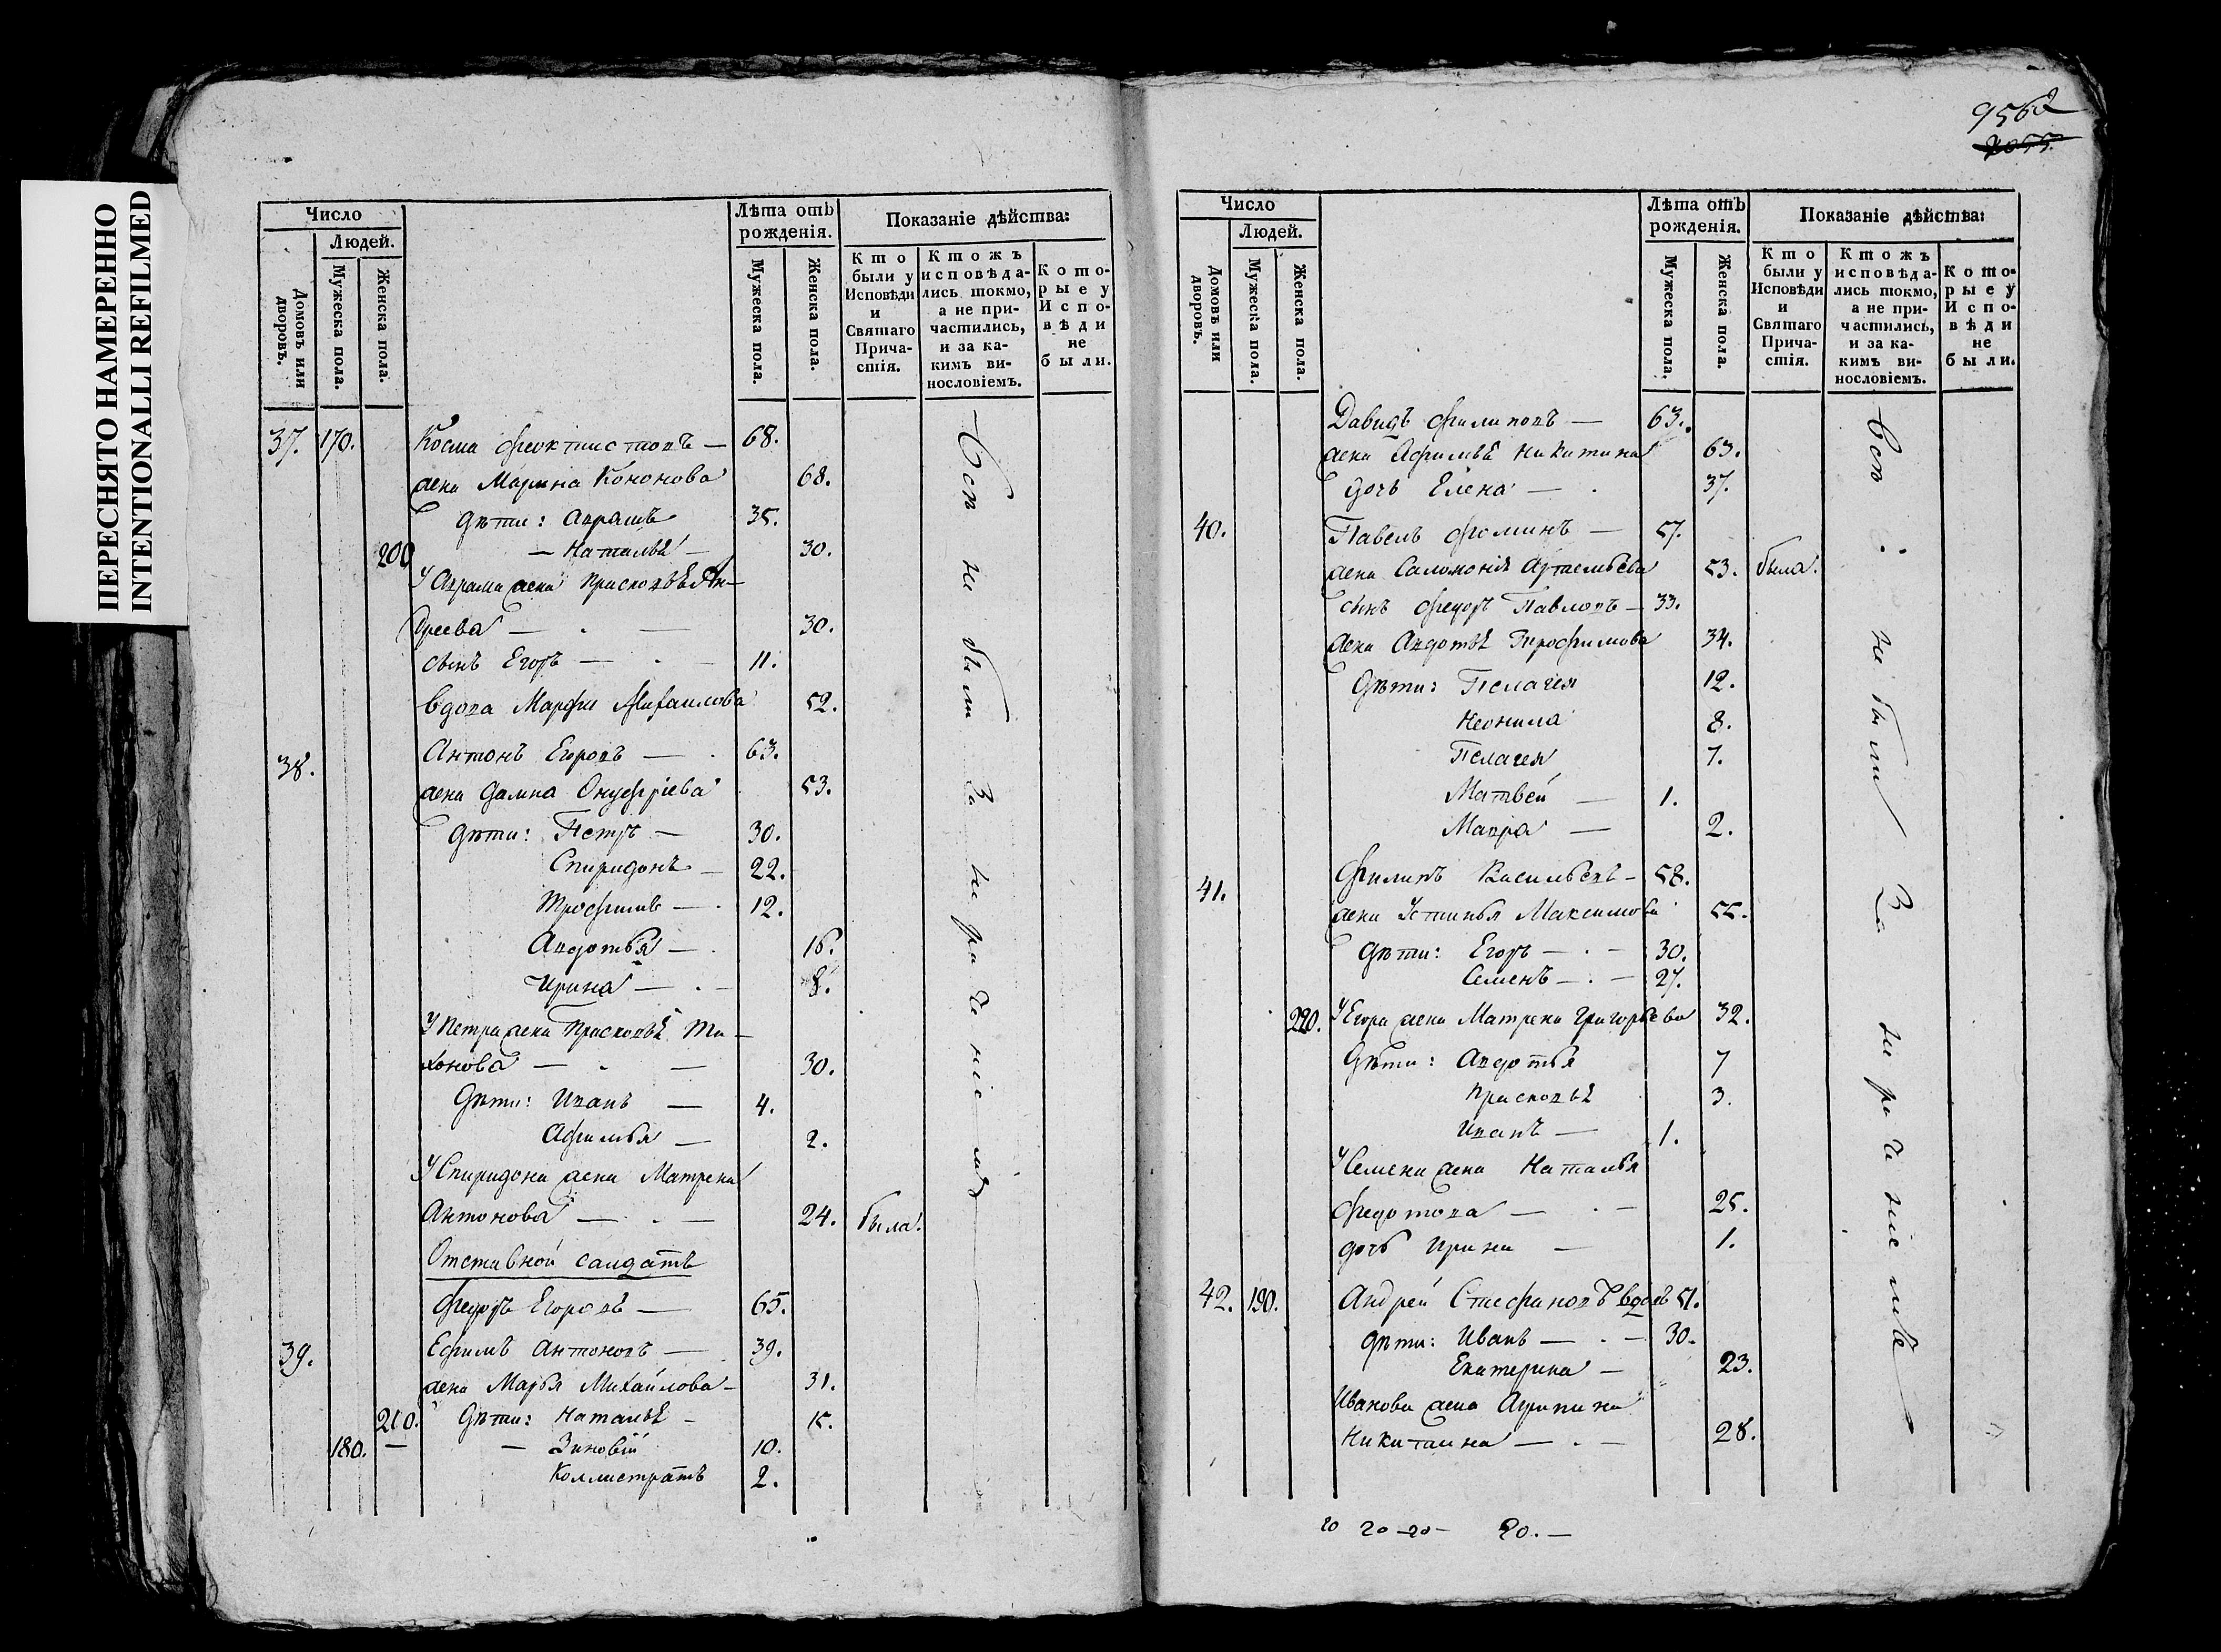 ПЕРЕСНЯТО НАМЕРЕННО
INTENTIONALLI REFILMED
Число
Людей.
Домовъ или дворовъ.
Мужеска пола.
Женска пола.
Лѣта отъ рожденія.
Мужеска пола.
Женска пола.
Показаніе дѣйства:
Кто были у Исповѣди и Святаго Причастія.
Ктожъ исповѣдались токмо, а не причастились, и за какимъ винословіемъ.
Которые у Исповѣди не были.
37. 170. Косма Феоктистовъ — 68.
жена Марина Кононова 68.
дѣти: Аврамъ 35.
200 — Наталья — 30.
У Аврама жена Прасковья Ан-
дреева — 30.
сынъ Егоръ — 11.
вдова Марфа Михаилова 52.
38. Антонъ Егоровъ — 63.
жена Домна Онуфріева 53.
дѣти: Петръ — 30.
Спиридонъ — 22.
Трофимъ — 12.
Авдотья — 16.
Ирина — 8.
У Петра жена Прасковья Ти-
хонова — 30.
дѣти: Иванъ — 4.
Афимья — 2.
У Спиридона жена Матрена
Антонова — 24. была.
Отставной салдатъ
Федоръ Егоровъ — 65.
39. Ефимъ Антоновъ — 39.
жена Марья Михайлова — 31.
210. дѣти: Наталья — 15.
180. — — Зиновій 10.
Коллистратъ 2.
Всѣ не были За нераченіемъ
9562
Число
Людей.
Домовъ или дворовъ.
Мужеска пола.
Женска пола.
Лѣта отъ рожденія.
Мужеска пола.
Женска пола.
Показаніе дѣйства:
Кто были у Исповѣди и Святаго Причастія.
Ктожъ исповѣдались токмо, а не причастились, и за какимъ винословіемъ.
Которые у Исповѣди не были.
Давидъ Филиповъ — 63.
жена Афимья Никитина 63.
дочь Елена — 37.
40. Павелъ Фоминъ — 57.
жена Саломонія Артемьева 53. была.
сынъ Федоръ Павловъ — 33.
жена Авдотья Трофимова 34.
дѣти: Пелагея 12.
Неонила 8.
Пелагея 7.
Матвей — 1.
Мавра — 2.
41. Филипъ Васильевъ — 58.
жена Устинья Максимова 55.
дѣти: Егоръ — 30.
Семенъ — 27.
220. У Егора жена Матрена Григорьева 32.
Дѣти: Авдотья 7
Прасковья 3.
Иванъ — 1.
У Семена жена Наталья
Федотова — 25.
дочь Ирина — 1.
42. 190. Андрей Стефановъ вдовъ 51.
дѣти: Иванъ — 30.
Екатерина — 23.
Иванова жена Агрипина
Никитина — 28.
Всѣ не были За нераченіемъ
20 20 — 20 — 20. —